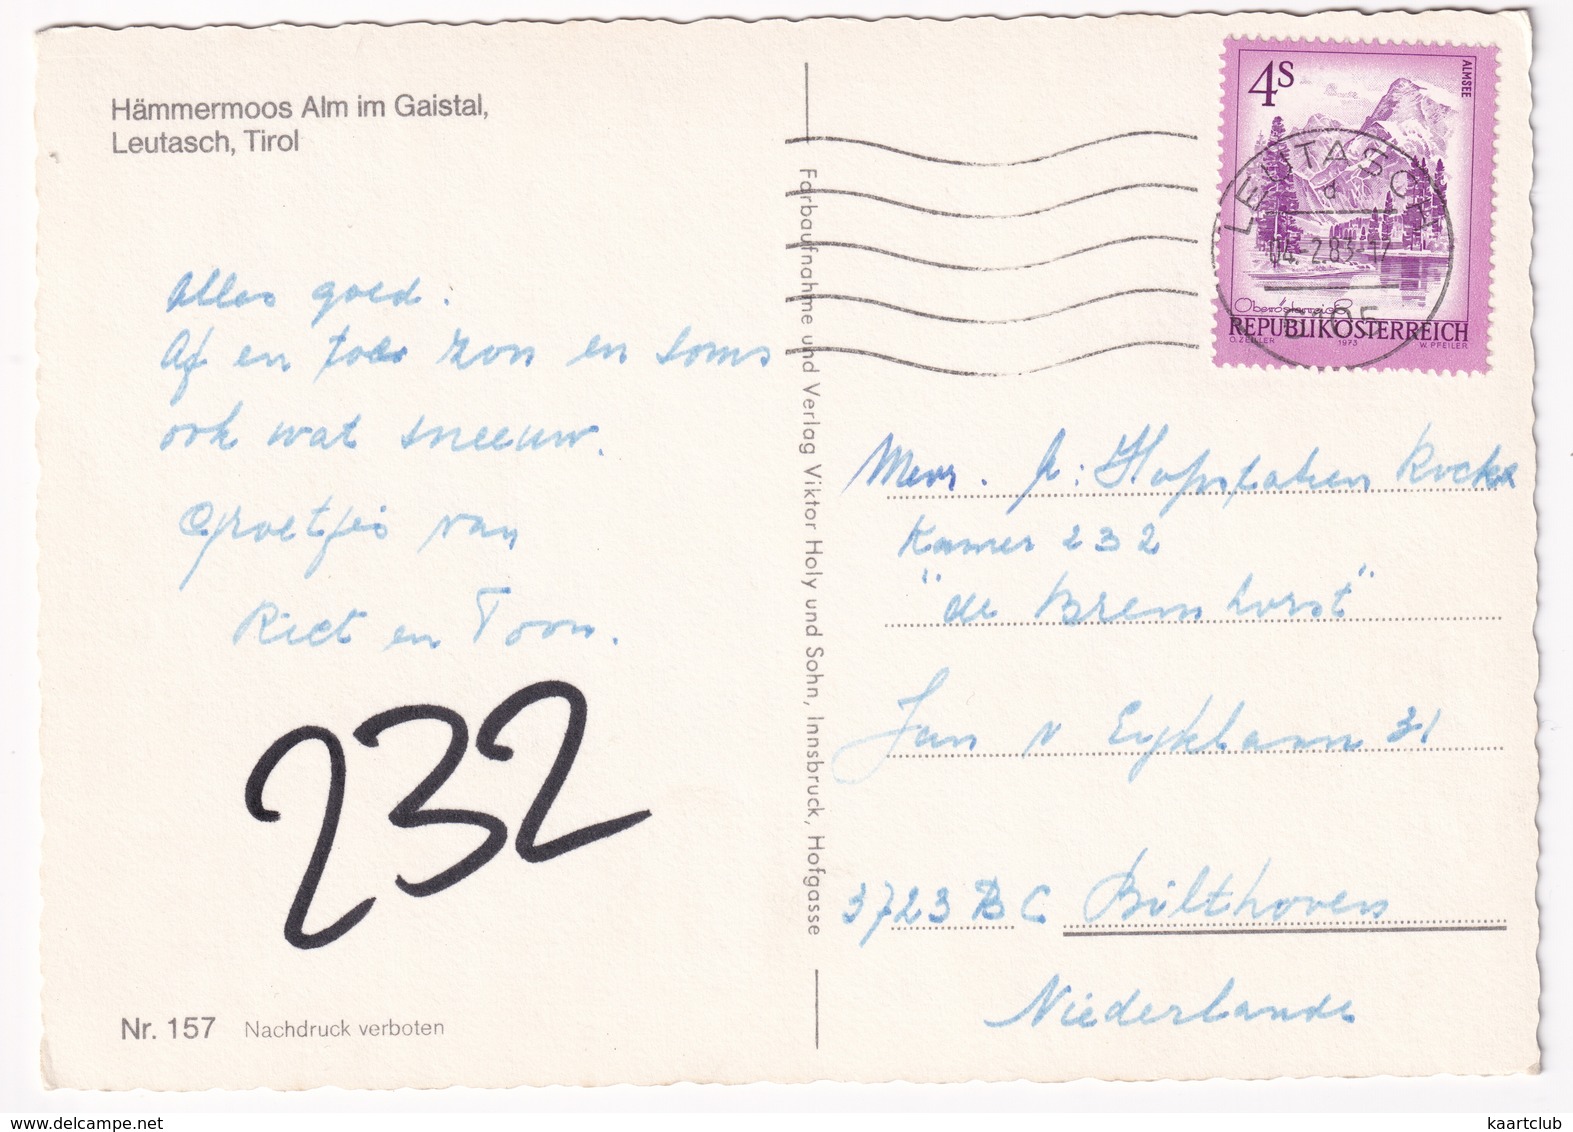 Hämmermoos Alm im Gaistal,
Leutasch, Tirol
Alles goed.
Af en toe zon en soms
ook wat sneeuw.
Groetjes van
Riet en Toon.
232
Nr. 157 Nachdruck verboten
Farbaufnahme und Verlag Viktor Holy und Sohn, Innsbruck, Hofgasse
4S
ALMSEE
LEUTASCH
d
04.-2.83-17
Oberösterreich
REPUBLIK ÖSTERREICH
O. ZEILLER 1973 W. PFEILER
Mevr.
Kamer 232
"de Bremhorst"
Jan v Eyklaan 31
3723 BC Bilthoven
Niederlande
www.delcampe.net
kaartclub